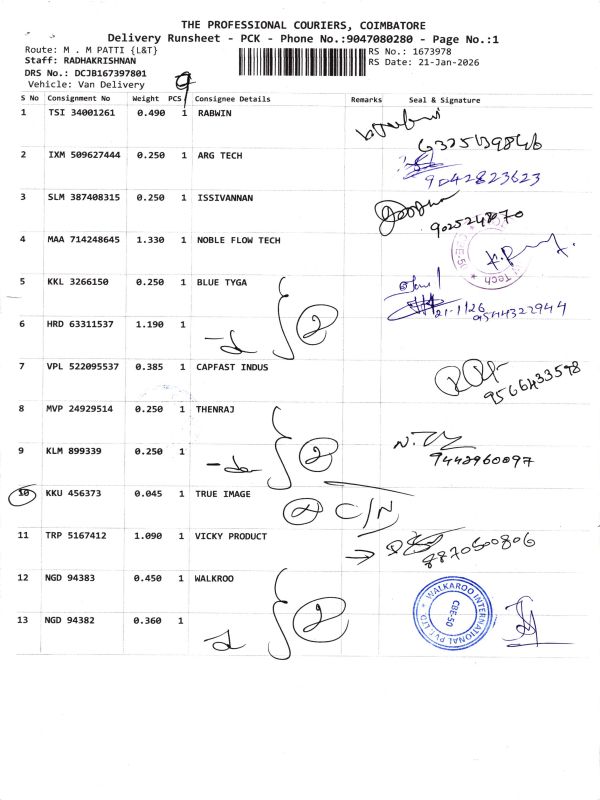 THE PROFESSIONAL COURIERS, COIMBATORE
Delivery Runsheet - PCK - Phone No.:9047080280 - Page No.:1
Route: M . M PATTI {L&T}
RS No.: 1673978
Staff: RADHAKRISHNAN
RS Date: 21-Jan-2026
DRS No.: DCJB167397801
Vehicle: Van Delivery
9
S No Consignment No Weight PCS Consignee Details Remarks Seal & Signature
1 TSI 34001261 0.490 1 RABWIN
2 IXM 509627444 0.250 1 ARG TECH
9042823623
3 SLM 387408315 0.250 1 ISSIVANNAN
4 MAA 714248645 1.330 1 NOBLE FLOW TECH
5 KKL 3266150 0.250 1 BLUE TYGA
21-1-126
9544322944
6 HRD 63311537 1.190 1 2
7 VPL 522095537 0.385 1 CAPFAST INDUS
9566433598
8 MVP 24929514 0.250 1 THENRAJ
9 KLM 899339 0.250 1 2
9442960097
10 KKU 456373 0.045 1 TRUE IMAGE
C/N
11 TRP 5167412 1.090 1 VICKY PRODUCT
8870500806
12 NGD 94383 0.450 1 WALKROO
WALKAROO INTERNATIONAL PVT. LTD
CBE-50
13 NGD 94382 0.360 1 2